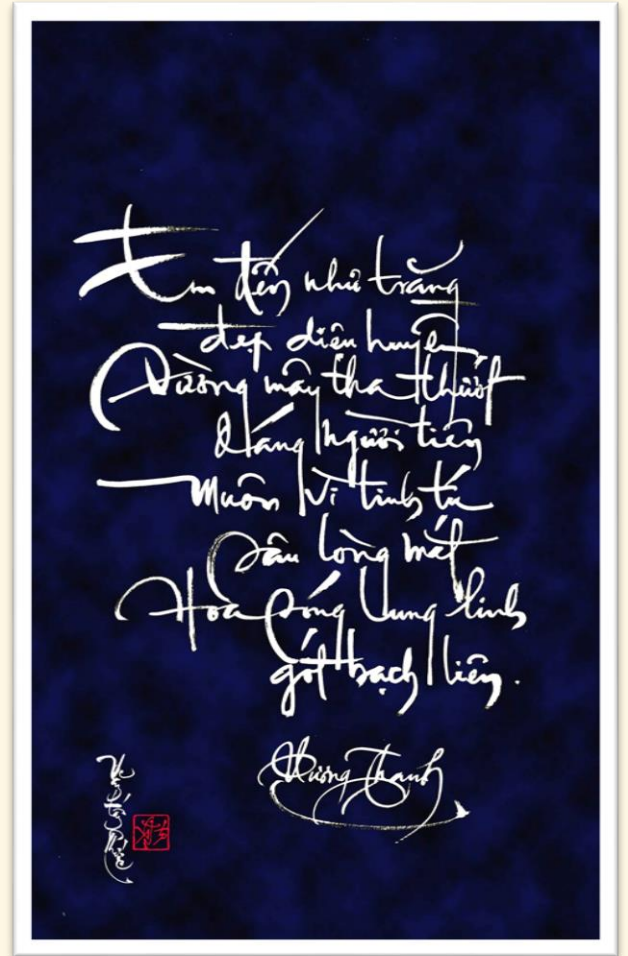 Em đến như trăng
đẹp diệu huyền
Đường mây tha thướt
dáng người tiên
Muôn vì tinh tú
sâu lòng mắt
Hoa sóng lung linh
gót bạch liên.
Phương Thanh